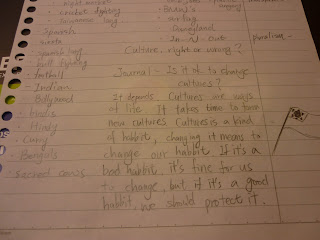 chicken fighting
spanish
siesta
bull fighting
football
Indian
hindis
Hindy
Curry
Bengals
sacred cows
Disneyland
In - N - Out
Culture, right or wrong?
Journal - Is it ok to change
cultures?
It depends. Cultures are ways
of life. It takes time to form
new cultures. Cultures is a kind
of habbit, changing it means to
change our habbit. If it's a
bad habbit, it's fine for us
to change, but if it's a good
habbit, we should protect it.